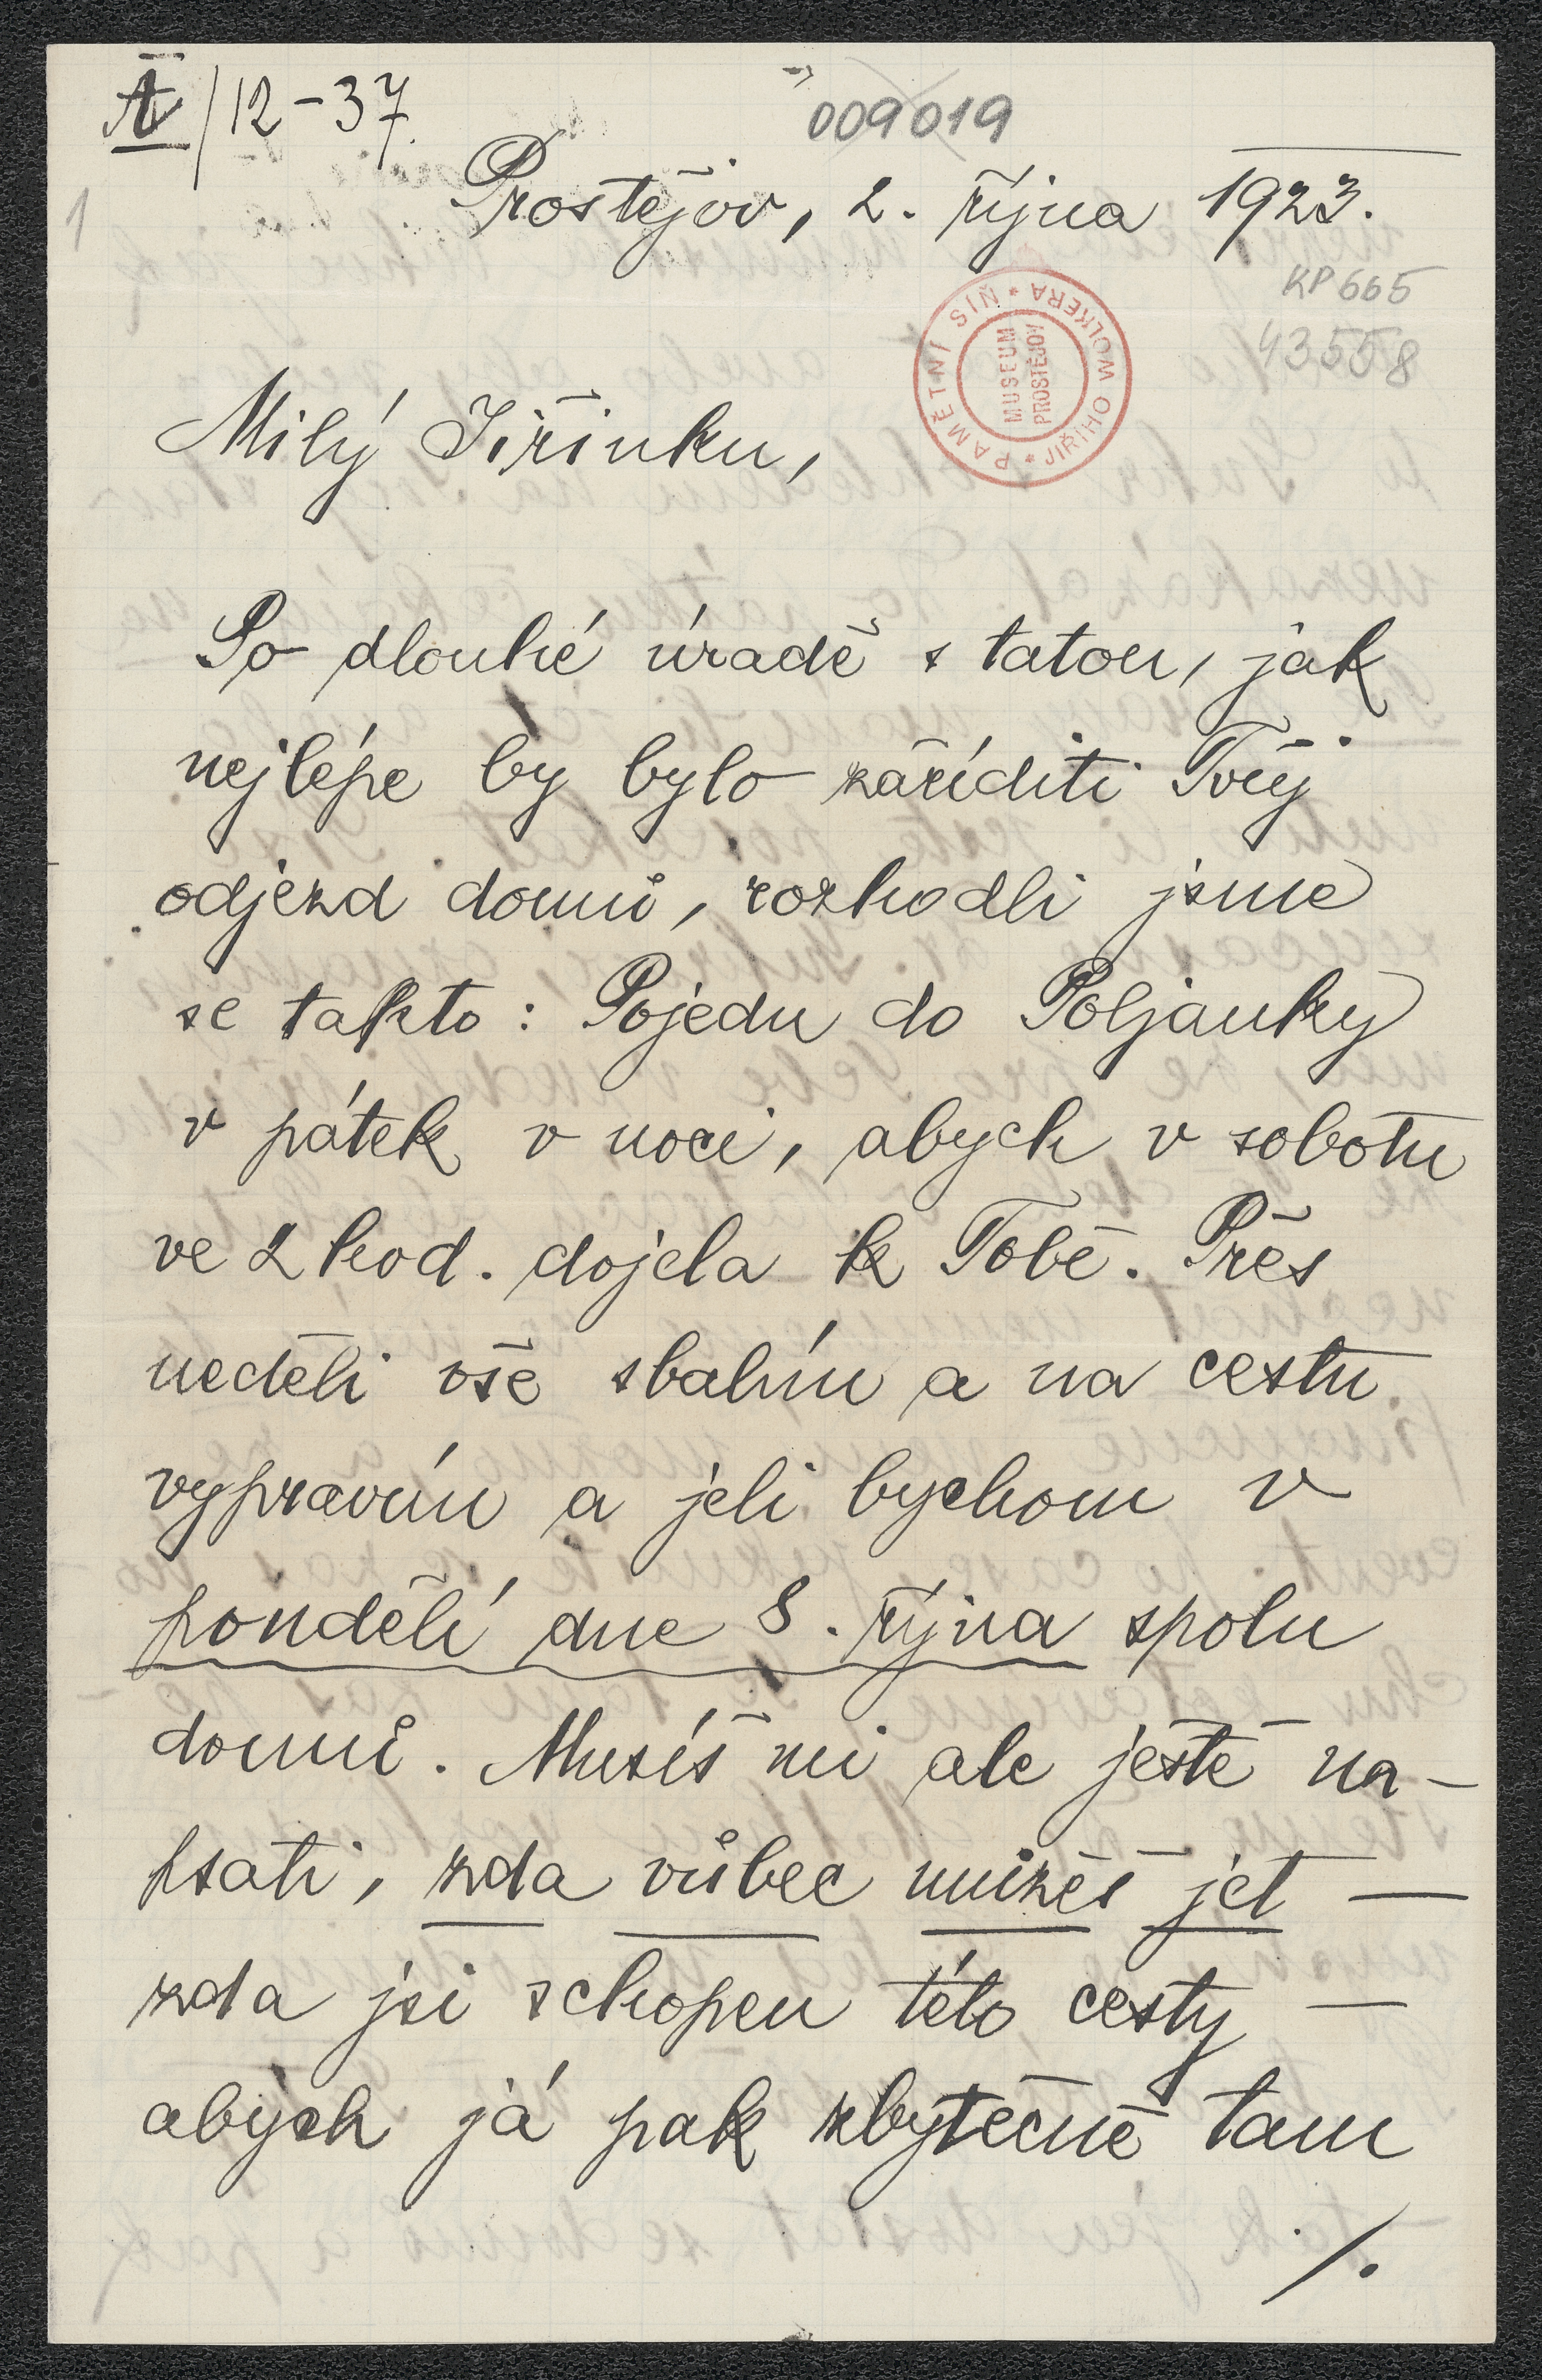 A/12-37.
009019
1
Prostějov, 2. října 1923.
KP 665
43558
PAMĚTNÍ SÍŇ * JIŘÍHO WOLKERA *
MUSEUM
PROSTĚJOV
Milý Jiřinku,
Po dlouhé úradě s tatou, jak
nejlépe by bylo zaříditi Tvůj
odjezd domů, rozhodli jsme
se takto: Pojedu do Poljanky
v pátek v noci, abych v sobotu
ve 2 hod. dojela k Tobě. Přes
neděli vše sbalím a na cestu
vypravím a jeli bychom v
pondělí dne 8. října spolu
domů. Musíš mi ale ještě na-
psati, zda vůbec můžeš jet —
zda jsi schopen této cesty —
abych já pak zbytečně tam
./.